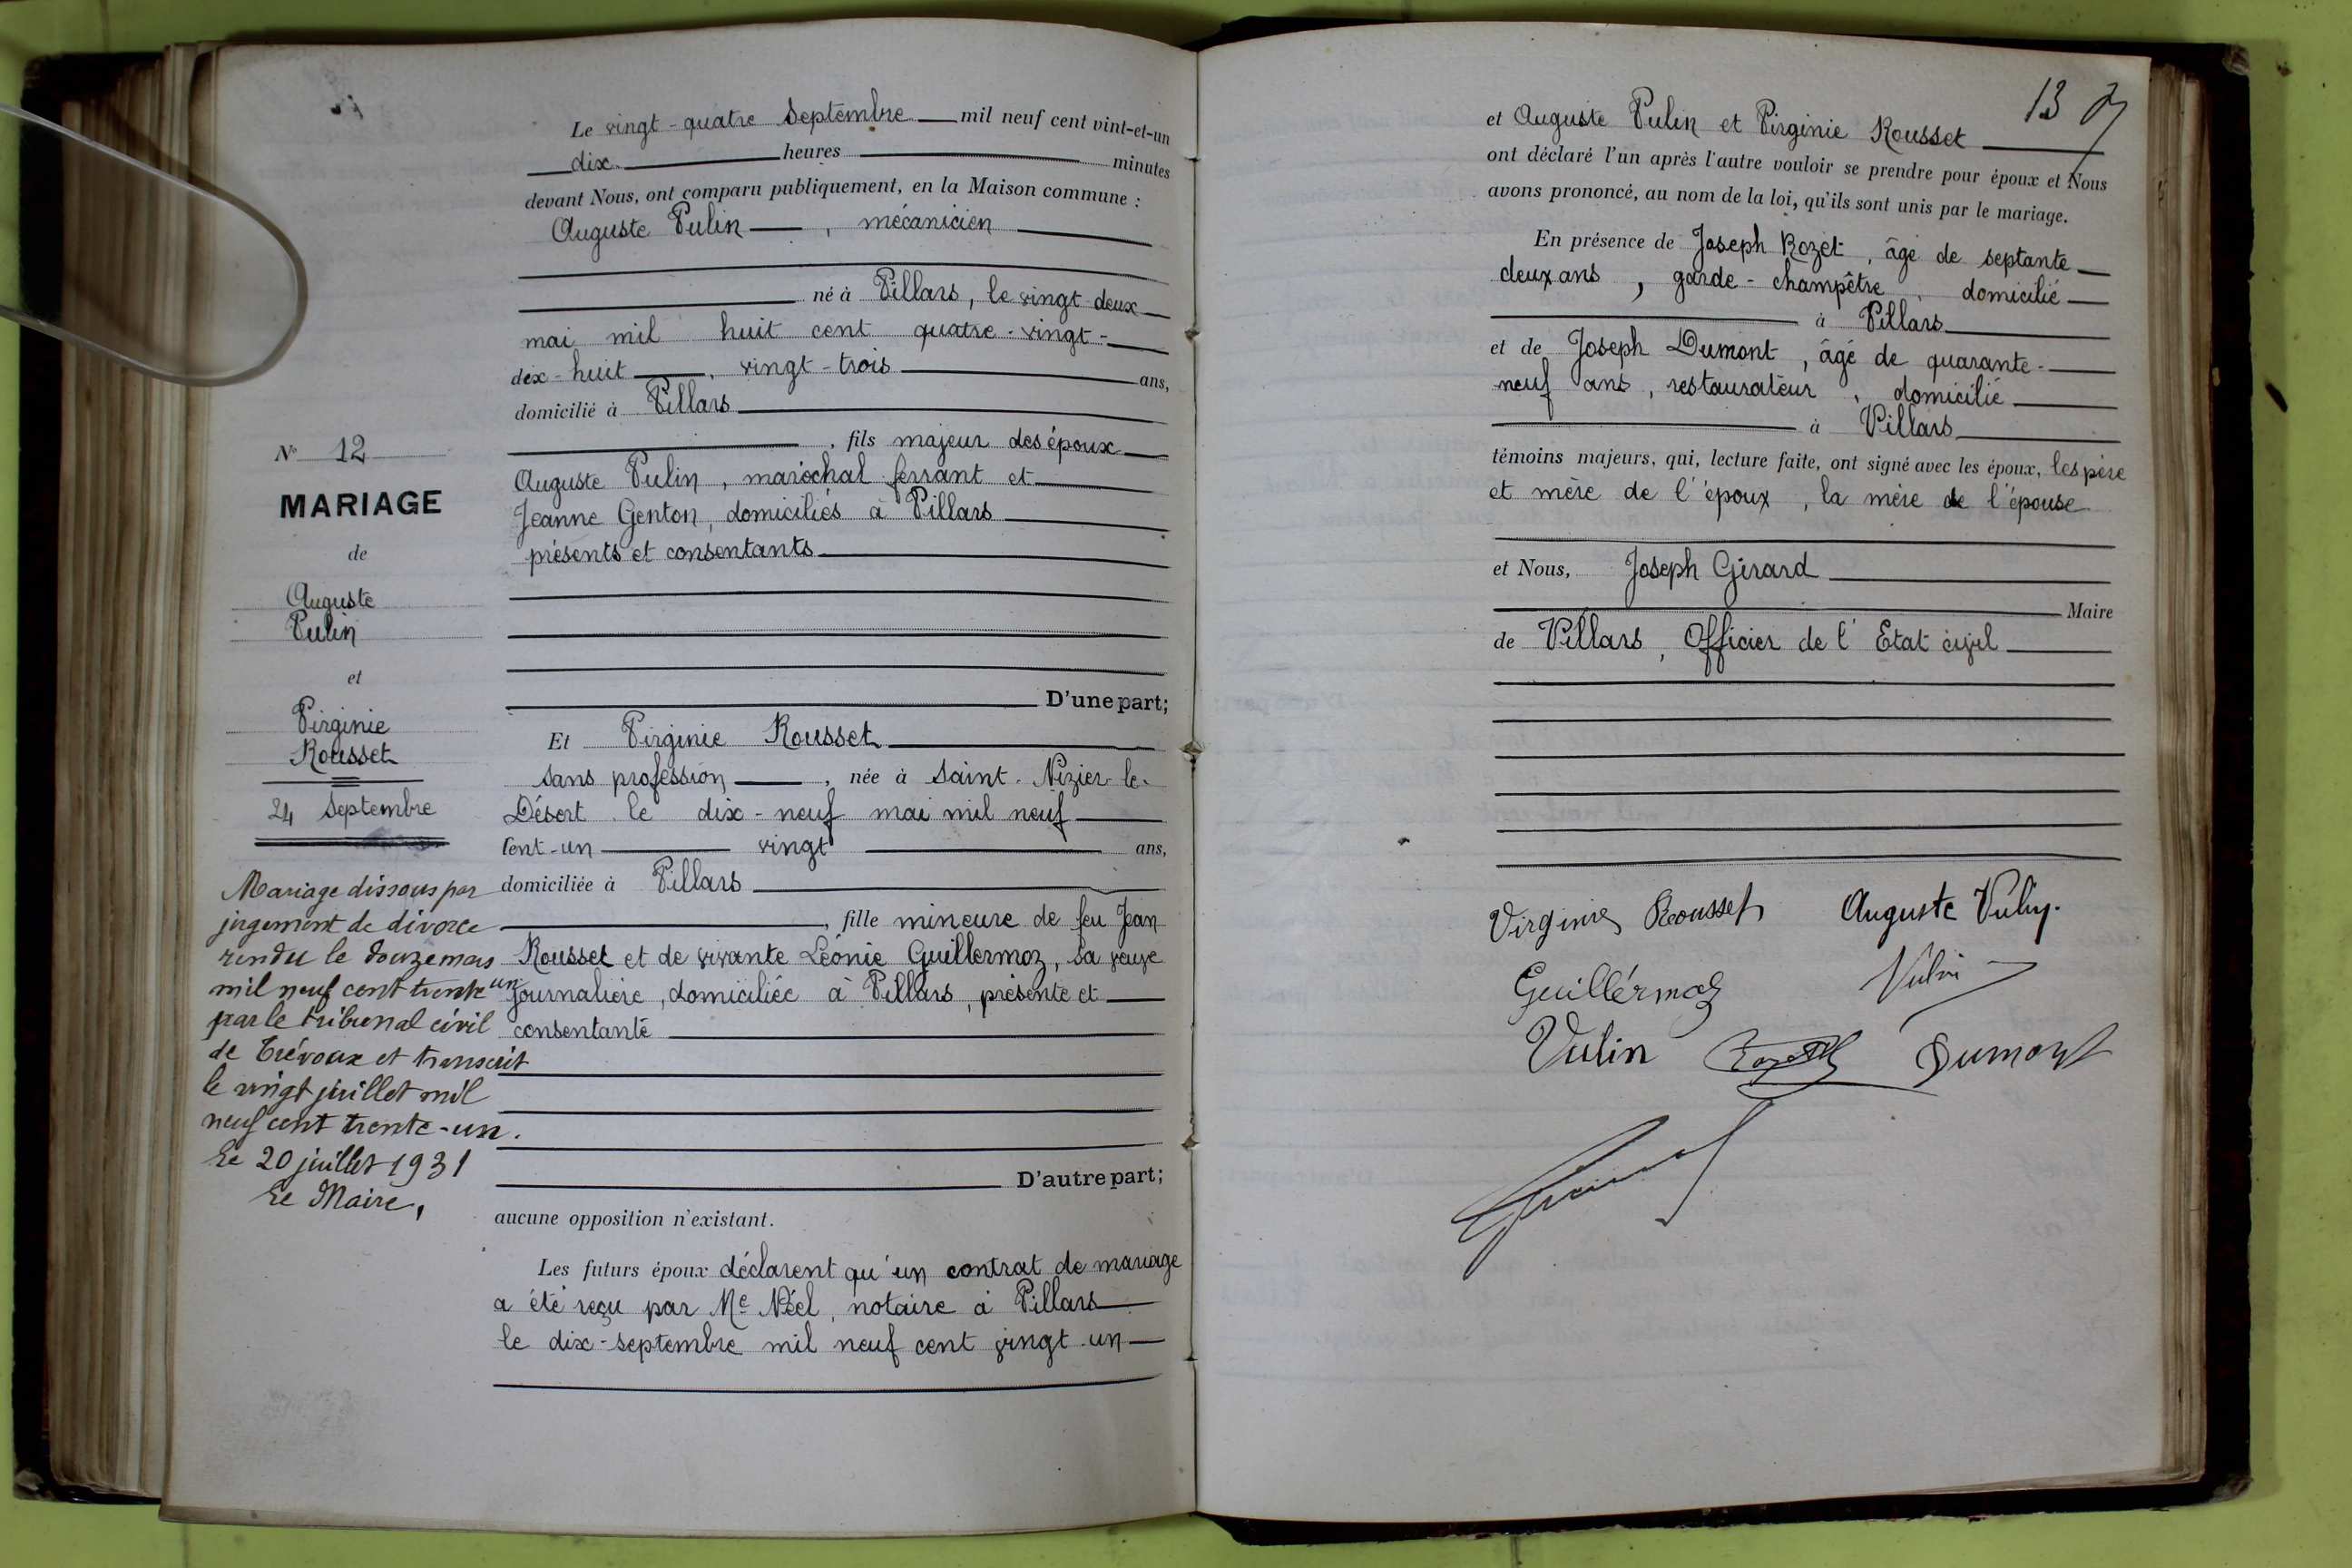 Le vingt-quatre Septembre mil neuf cent vint-et-un
dix heures minutes
devant Nous, ont comparu publiquement, en la Maison commune :
Auguste Vulin, mécanicien
né à Villars, le vingt-deux
mai mil huit cent quatre-vingt-
dix-huit, vingt-trois ans,
domicilié à Villars
, fils majeur des époux
Auguste Vulin, maréchal ferrant et
Jeanne Genton, domiciliés à Villars
présents et consentants
D'une part;
Et Virginie Rousset
sans profession, née à Saint-Nizier-le-
Désert le dix-neuf mai mil neuf
cent-un vingt ans,
domiciliée à Villars
, fille mineure de feu Jean
Rousset et de vivante Léonie Guillermoz, sa veuve
journalière, domiciliée à Villars, présente et
consentante
D'autre part;
aucune opposition n'existant.
Les futurs époux déclarent qu'un contrat de mariage
a été reçu par Me Néel, notaire à Villars
le dix-septembre mil neuf cent vingt-un
N° 12
MARIAGE
de
Auguste
Vulin
et
Virginie
Rousset
24 Septembre
Mariage dissous par
jugement de divorce
rendu le douze mars
mil neuf cent trente un
par le tribunal civil
de Trévoux et transcrit
le vingt juillet mil
neuf cent trente-un.
Le 20 juillet 1931
Le Maire,
13
et Auguste Vulin et Virginie Rousset
ont déclaré l'un après l'autre vouloir se prendre pour époux et Nous
avons prononcé, au nom de la loi, qu'ils sont unis par le mariage.
En présence de Joseph Rozet, âgé de septante
deux ans, garde-champêtre, domicilié
à Villars
et de Joseph Dumont, âgé de quarante-
neuf ans, restaurateur, domicilié
à Villars
témoins majeurs, qui, lecture faite, ont signé avec les époux, les père
et mère de l'époux, la mère de l'épouse
et Nous, Joseph Girard
Maire
de Villars, Officier de l'Etat civil
Virginie Rousset Auguste Vulin.
Guillérmoz Vulin
Vulin Rozet Dumont